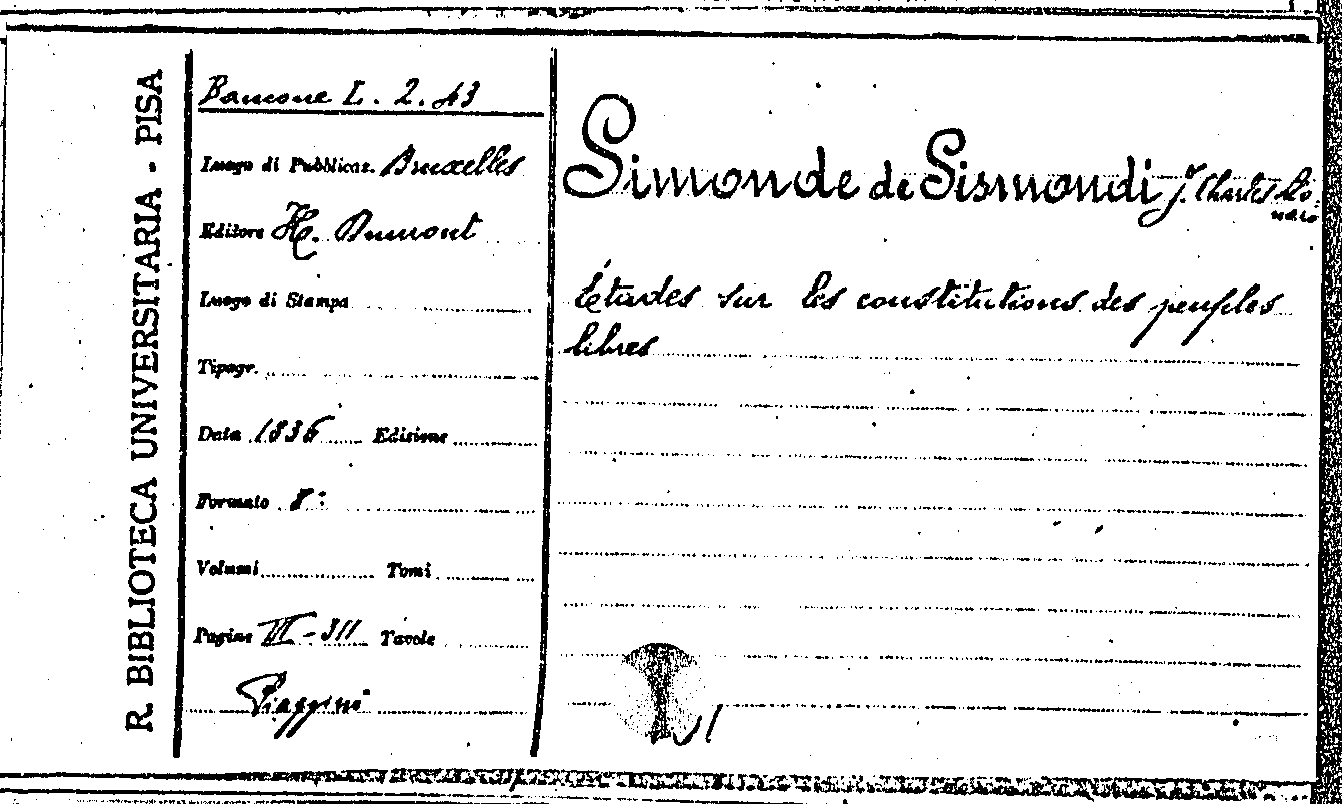 R. BIBLIOTECA UNIVERSITARIA - PISA
Bancone I. 2. 43
Luogo di Pubblicaz. Bruxelles
Editore H. Dumont
Luogo di Stampa
Tipogr.
Data 1836 Edizione
Formato 8:
Volumi Tomi
Pagine III-311 Tavole
Piaggini
Simonde de Sismondi J. Charles Leo:
nard
Études sur les constitutions des peuples
libres